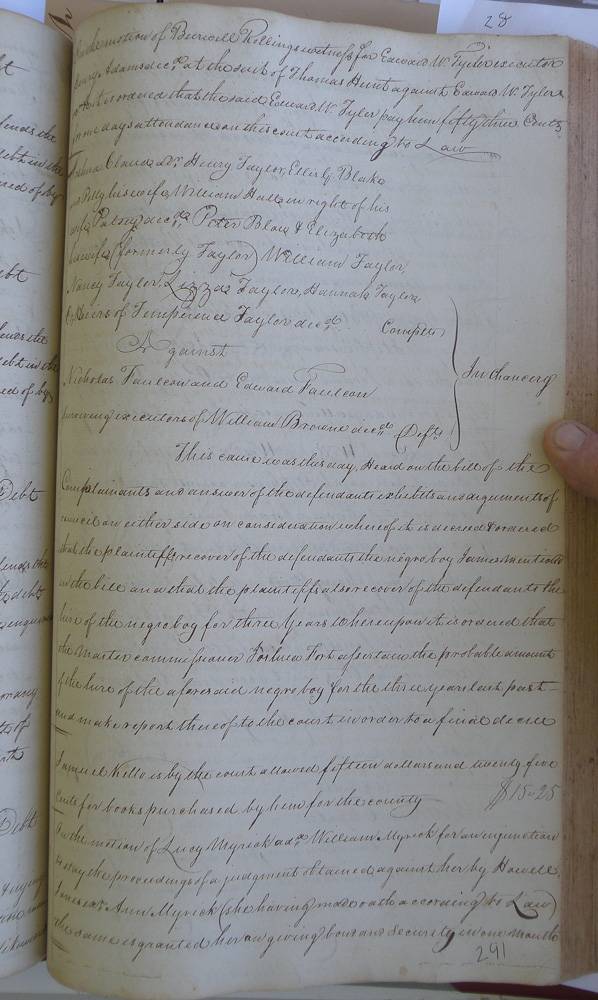 28
On the motion of Burwell Rollings witness for Edward W. Tyler executor
Henry Adams decd at the suit of Thomas Hunt against Edward W. Tyler
it is ordered that the said Edward W. Tyler pay him fifty three Cents
for one days attendance on this court according to Law
Joshua Claud, Henry Taylor, Blake
and Polly his wife, William Hall in right of his
wife Patsey decd, Peter Blow & Elizabeth
his wife (formerly Taylor) William Taylor,
Nancy Taylor, Lizza Taylor, Hannah Taylor
heirs of Temperence Taylor decd Complts
Against
In Chancery
Nicholas Faulcon and Edward Faulcon
surviving executors of William Browne decd Defts
This cause was this day, Heard on the bill of the
Complainants and answer of the defendants exhibits and arguments of
council on either side on consideration whereof it is decreed & ordered
that the plaintiffs recover of the defendants the negro boy James mentioned
in the bill and that the plaintiffs also recover of the defendants the
hire of the negro boy for three Years Whereupon it is ordered that
the Master commissioner Joshua Fort assertain the probable amount
of the hire of the aforesaid negro boy for the three years last past
and make report thereof to the court in order to a final decree
Samuel Kello is by the court allowed fifteen dollars and twenty five
Cents for books purchased by him for the county $15-25
On the motion of Lucy Myrick adx William Myrick for an injunction
to stay the proceedings of a judgment obtained against her by Howell
Jones exr Ann Myrick (she having made oath according to Law)
the same is granted her on giving bond and security in one month
291
Debt